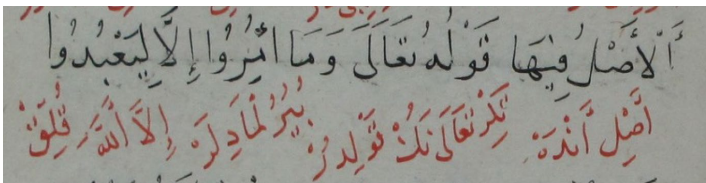 أَلْأَصْلُ فِيهَا قَوْلُهُ تَعَالَى وَمَا أُمِرُوا إِلَّا لِيَعْبُدُوا
أَصْلِ أَنْدَهْ تَكْرِ تَعَالَى نُكْ قَوْلِدُرْ بُيُرُلْمَادِلَرْ إِلَّا اللَّهَ قُلِقْ